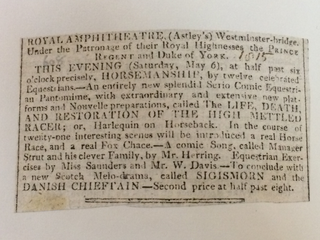 ROYAL AMPHITHEATRE, (Astley's) Westminster-bridge.
Under the Patronage of their Royal Highnesses the PRINCE
REGENT and DUKE of YORK. 1815
THIS EVENING (Saturday, May 6), at half past six
o'clock precisely, HORSEMANSHIP, by twelve celebrated
Equestrians.—An entirely new splendid Serio Comic Equestri-
an Pantomime, with extraordinary and extensive new plat-
forms and Nouvelle preparations, called The LIFE, DEATH,
AND RESTORATION OF THE HIGH METTLED
RACER; or, Harlequin on Horseback. In the course of
twenty-one interesting scenes will be introduced a real Horse
Race, and a real Fox Chace.—A comic Song, called Manager
Strut and his clever Family, by Mr. Herring. Equestrian Exer-
cises by Miss Saunders and Mr. W. Davis.—To conclude with
a new Scotch Melo-drama, called SIGISMORN and the
DANISH CHIEFTAIN.—Second price at half past eight.